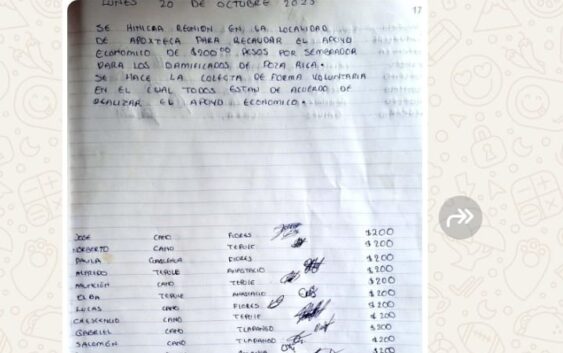 LUNES 20 DE OCTUBRE 2025
17
SE HINICIA REUNION EN LA LOCALIDAD
DE APOXTECA PARA RECAUDAR EL APOYO
ECONOMICO DE $200.00 PESOS POR SEMBRADOR
PARA LOS DAMIFICADOS DE POZA RICA.
SE HACE LA COLECTA DE FORMA VOLUNTARIA
EN EL CUAL TODOS ESTAN DE ACUERDO DE
REALIZAR EL APOYO ECONOMICO.
JOSE CANO FLORES $200
NORBERTO CANO TEPOLE $200
PAULA FLORES $200
ALFREDO TEPOLE ANASTACIO $200
CANO TEPOLE $200
ELBA TEPOLE ANASTACIO $200
LUCAS CANO FLORES $200
CRESCENCIO CANO TEPOLE $200
GABRIEL CANO TLAPANGO $200
SALOMÓN CANO TLAPANGO $200